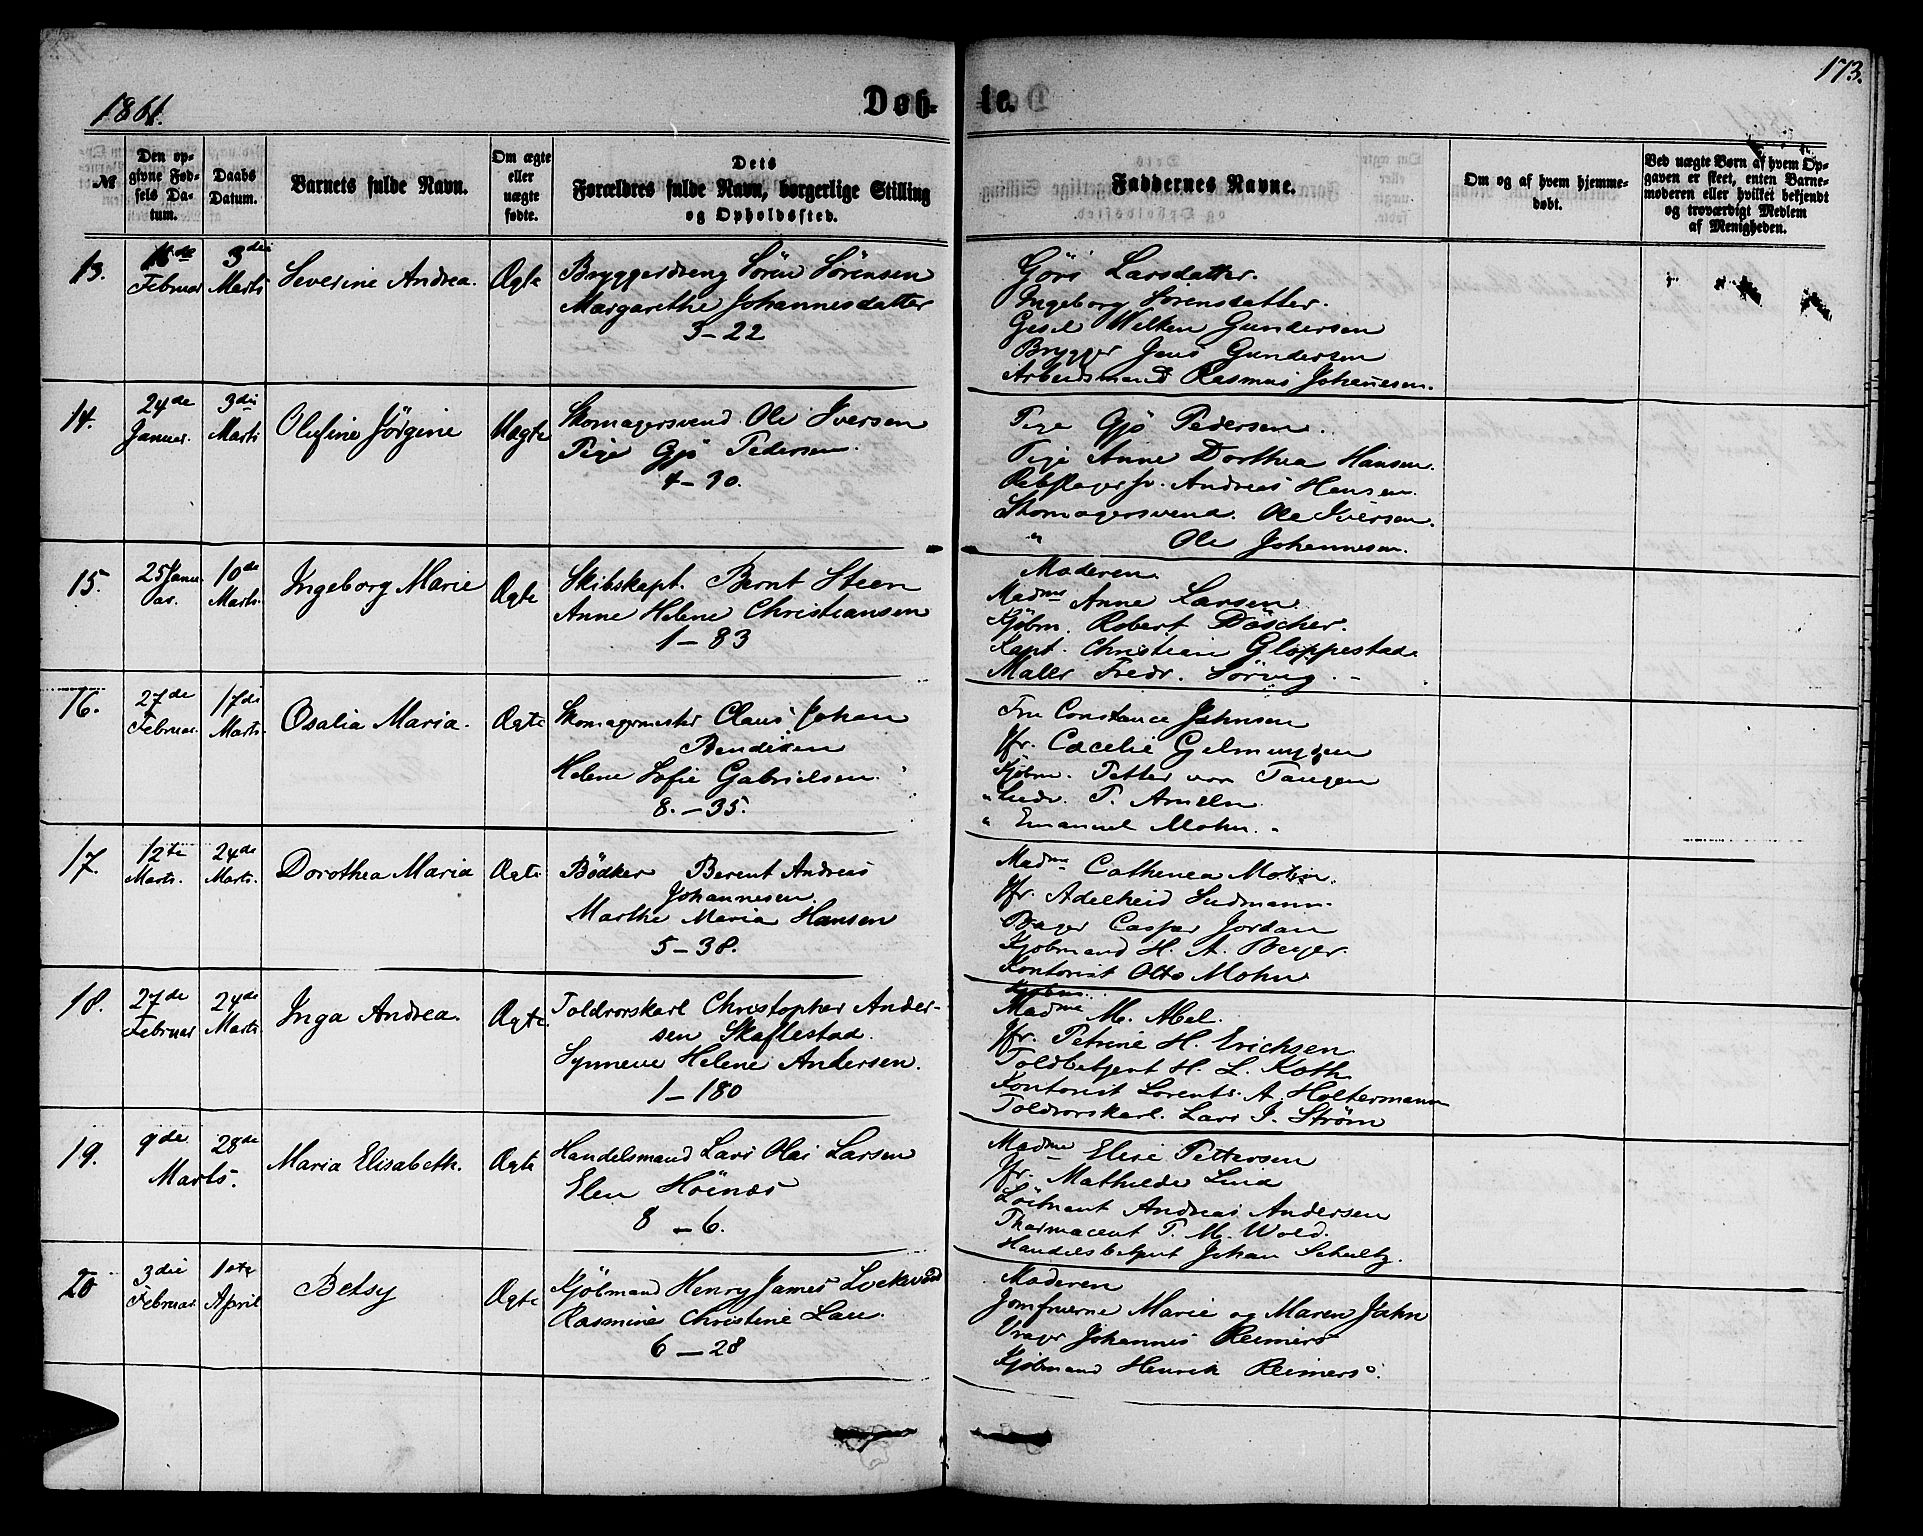 1861.
Døb-
te.
173.
№
Den op-
givne Fød-
sels Da-
tum.
Daabs
Datum.
Barnets fulde Navn.
Om ægte
eller
uægte
fødte.
Dets
Forældres fulde Navn, borgerlige Stilling
og Opholdssted.
Faddernes Navne.
Om og af hvem hjemme-
døbt.
Ved uægte Børn af hvem Op-
gaven er skeet, enten Barne-
moderen eller hvilket bekjendt
og troværdigt Medlem
af Menigheden.
13.
Februar
3die
Marts
Severine Andrea.
Ægte
Bryggerdreng Sören Sörensen
Margarethe Johannesdatter
3-22
Larsdatter.
Ingeborg Sörensdatter.
Gesel Welken Gundersen
Brygger Jens Gundersen
Arbeidsmand Rasmus Johanesen.
14.
24de
Januar.
3die
Marts
Olufine Jörgine
Uægte
Skomagersvend Ole Iversen
Pige Gjö Pedersen.
4-30.
Pige Gjö Pedersen.
Pige Anne Dorthea Hansen.
Rebslagersv. Andreas Hansen.
Skomagersvend. Ole Iversen.
" Ole Johannesen.
15.
25 Janu
ar.
10de
Marts.
Ingeborg Marie
Ægte
Skibskapt. Bernt Steen
Anne Helene Christiansen
1-83
Moderen.
Madme Anne Larsen
Kjöbm. Robert Döscher.
Kapt. Christian Gloppestad.
Maler Fredr. Sörvig.
16.
27de
Februar.
17de
Marts.
Osalia Maria.
Ægte
Skomagermester Claus Johan
Bendixen
Helene Sofie Gabrielsen.
8.-35.
Fru Constance Jahnsen
Jfr. Cæcelie Gelmuyden
Kjöbm. Petter von Tangen
" Ludv. T. Ameln.
" Emanuel Mohn.
17.
12te
Marts.
24de
Marts.
Dorothea Maria
Ægte
Bödker Berent Andreas
Johannesen.
Marthe Maria Hansen
5-38.
Madme Cathenca Mohn.
Jfr. Adelheid Sudmann.
Bager Caspar Jordan
Kjöbmand H. A. Beyer.
Kontorist Otto Mohn
18.
27de
Februar
24de
Marts.
Inga Andrea.
Ægte
Toldrorskarl Christopher Ander-
sen Skaftestad.
Synneve Helene Andersen.
1-180
Kjöbm.
Madme M. Abel.
Jfr. Petrine H. Erichsen
Toldbetjent H. L. Koth
Kontorist Lorents. A. Holtermann
Toldrorskarl. Lars J. Ström
19.
9de
28de
Marts.
Maria Elisabeth.
Ægte
Handelsmand Lars Olai Larsen
Elen Höinæs
8-6.
Madme Elise Pettersen
Jfr. Mathilde Lind
Löitnant Andreas Andersen
Pharmaceut T. M. Wold.
Handelsbetjent Johan Schultz.
20
3die
Februar
1ste
April
Betsy
Ægte
Kjöbmand Henry James Lockwood
Rasmine Christine Lau.
6-28
Moderen
Jomfruerne Marie og Maren Jahn
Vrager Johannes Reimers
Kjöbmand Henrik Reimers.